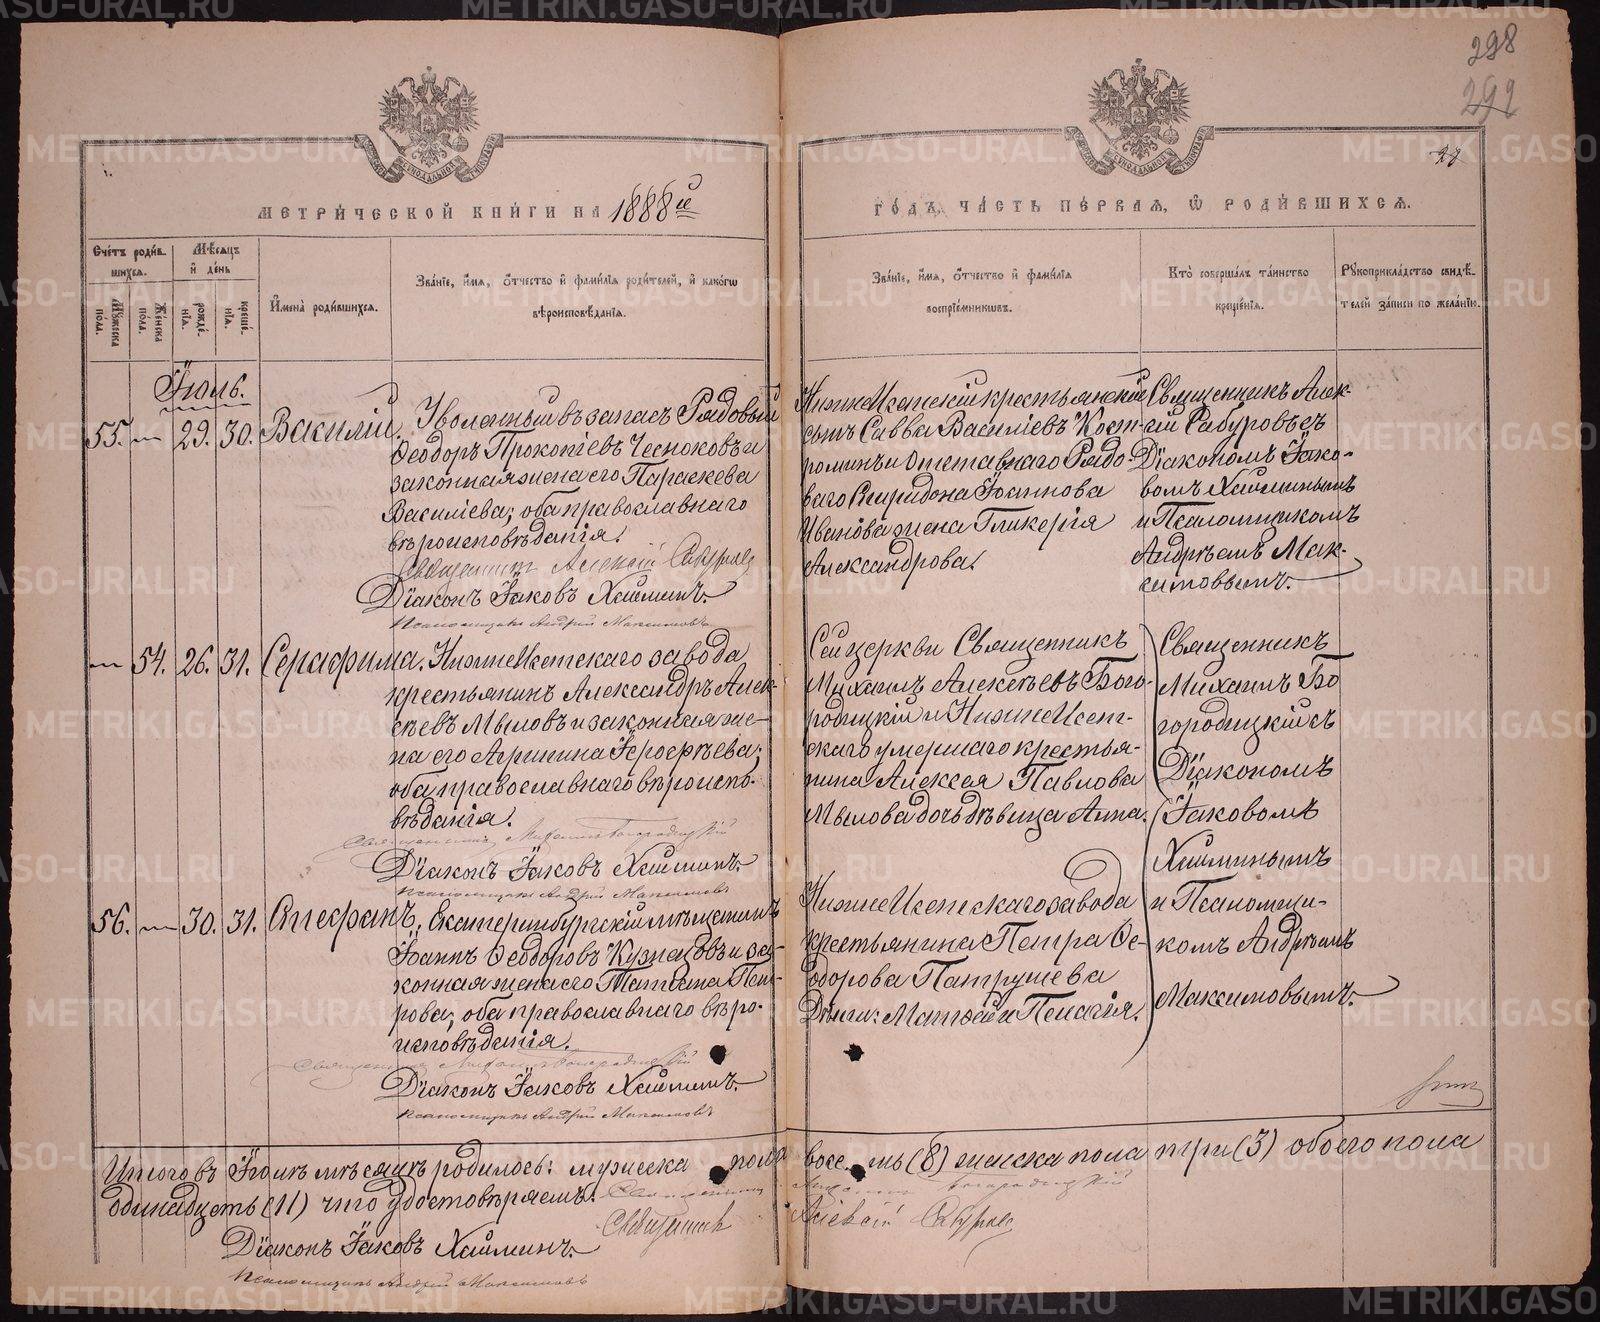 298
292
28
МЕТРИ́ЧЕСКОЙ КНИ́ГИ НА 1888й
ГО́ДЪ, ЧА́СТЬ ПЕ́РВАЯ, Ѡ РОДИ́ВШИХСЯ.
Счётъ роди́вшихся.
Мѣсяцъ и де́нь
Му́жеска по́ла.
Же́нска по́ла.
рожде́нія.
креще́нія.
Имена̀ роди́вшихся.
Зва́ніе, и́мя, о́тчество и фами́лія роди́телей, и како́гѡ
вѣроисповѣ́данія.
Зва́ніе, и́мя, о́тчество и фами́лія
воспріе́мникѡвъ.
Кто̀ соверша́лъ та́инство
креще́нія.
Рукоприкла́дство свидѣ́телей за́писи по жела́нію.
Іюль.
55. — 29. 30. Василій.
Уволенный въ запасъ Рядовый
Ѳеодоръ Прокопіевъ Чесноковъ и
законная жена его Параскева
Василіева; оба православнаго
вѣроисповѣданія.
Священникъ Алексій Сабуровъ
Діаконъ Іаковъ Хайминъ.
Псаломщикъ Андрей Максимовъ
Нижнеисетскій крестьянскій
сынъ Савва Василіевъ Кост-
роминъ и отставнаго Рядо-
ваго Спиридона Іоаннова
Иванова жена Гликерія
Александрова.
Священникъ Алек-
сій Сабуровъ съ
Діакономъ Іако-
вомъ Хайминымъ
и Псаломщикомъ
Андреемъ Мак-
симовымъ.
— 54. 26. 31. Серафима.
Нижнеисетскаго завода
крестьянинъ Александръ Алек-
сѣевъ Мыловъ и законная же-
на его Агрипина Іерофѣева;
оба православнаго вѣроиспо-
вѣданія.
Священникъ Михаилъ Богородицкій
Діаконъ Іаковъ Хайминъ.
Псаломщикъ Андрей Максимовъ
Сей церкви Священникъ
Михаилъ Алексѣевъ Бого-
родицкій и Нижнеисет-
скаго умершаго крестья-
нина Алексея Павлова
Мылова дочь дѣвица Анна.
Священникъ
Михаилъ Бо
городицкій съ
Діакономъ
Іаковомъ
Хайминымъ
и Псаломщи-
комъ Андреемъ
Максимовымъ.
56. — 30. 31. Стефанъ.
Екатеринбургскій мѣщанинъ
Іоаннъ Ѳеодоровъ Кузнецовъ и за-
конная жена его Татіана Пет-
рова; оба православнаго вѣро-
исповѣданія.
Священникъ Михаилъ Богородицкій
Діаконъ Іаковъ Хайминъ.
Псаломщикъ Андрей Максимовъ
Нижнеисетскаго завода
крестьянина Петра Ѳе-
одорова Патрушева
Дѣти: Матѳей и Пелагія.
Итого въ Іюлѣ мѣсяцѣ родилось: мужеска пола восемь (8) женска пола три (3) обоего пола
одинадцать (11) что удостовѣряемъ.
Священникъ Михаилъ Богородицкій
Священникъ Алексій Сабуровъ
Діаконъ Іаковъ Хайминъ.
Псаломщикъ Андрей Максимовъ
METRIKI.GASO-URAL.RU